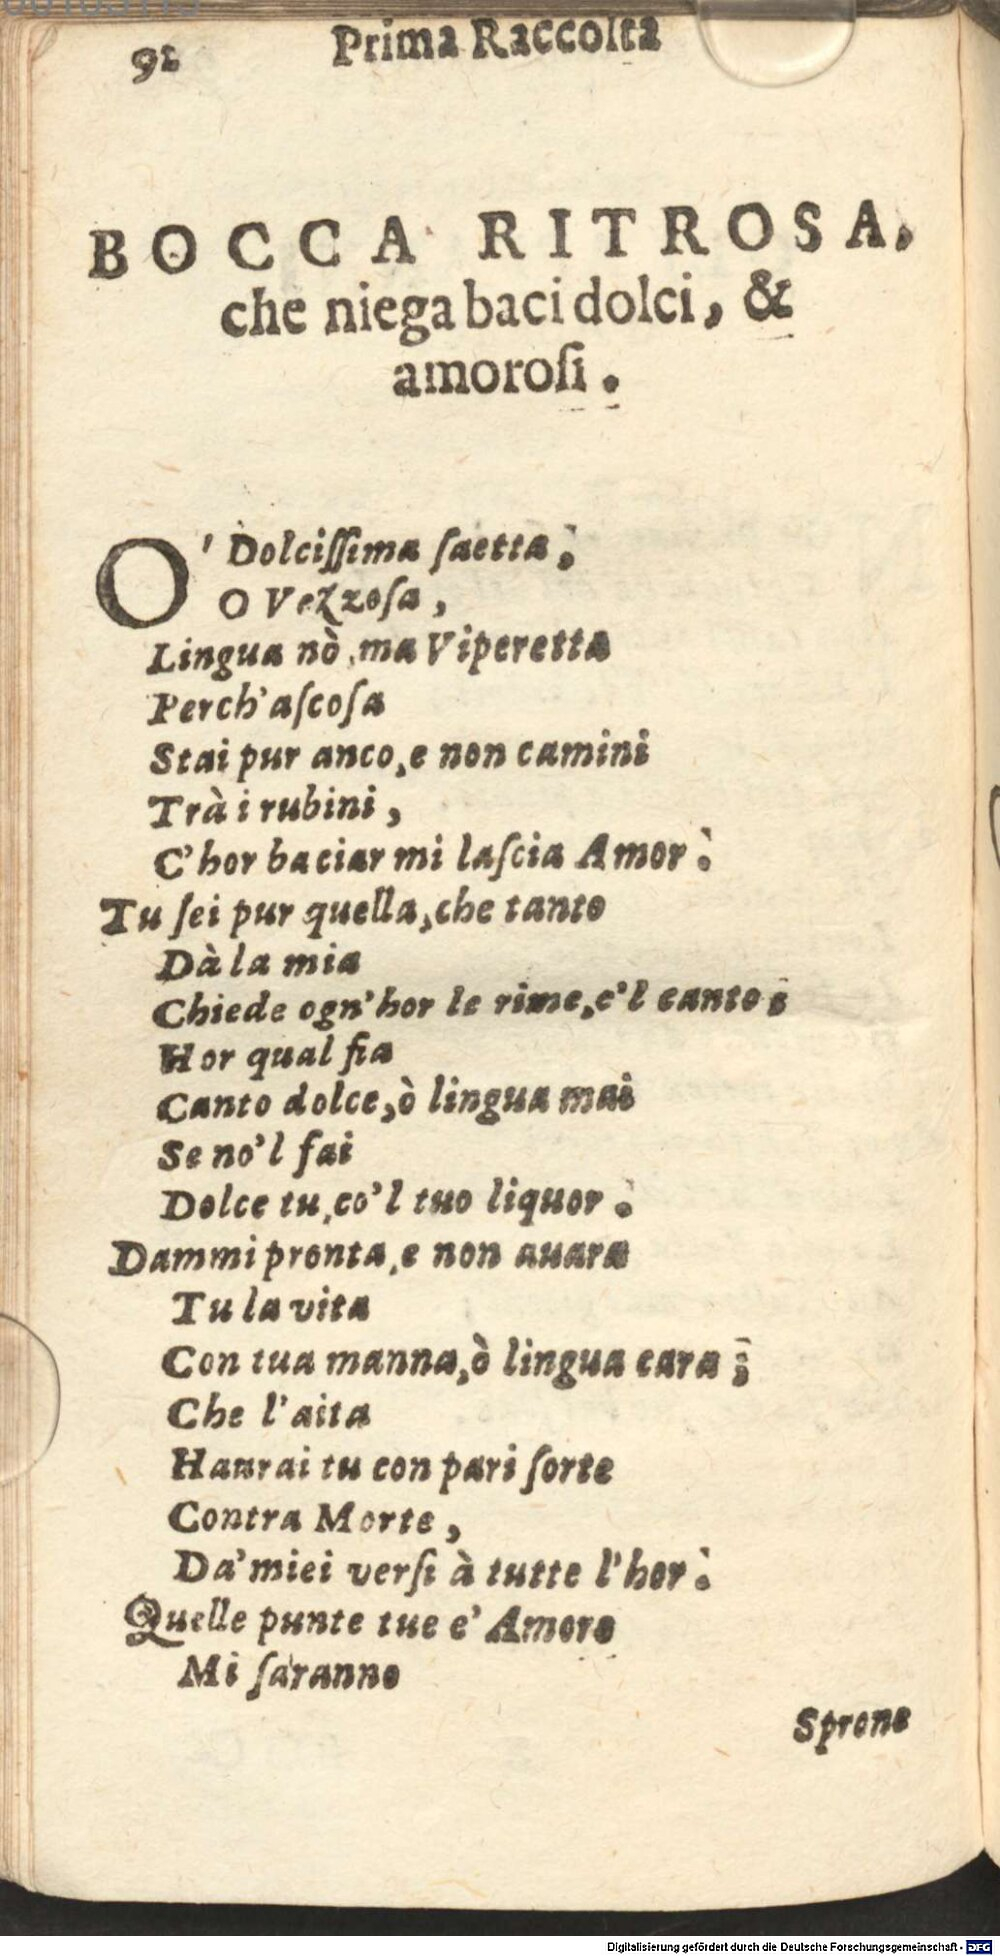 92
Prima Raccolta
BOCCA RITROSA,
che niega baci dolci, &
amorosi.
O' Dolcissima saetta;
O Vezzosa,
Lingua nò, ma Viperetta
Perch'ascosa
Stai pur anco, e non camini
Trà i rubini,
C'hor baciar mi lascia Amor?
Tu sei pur quella, che tanto
Dà la mia
Chiede ogn'hor le rime, e'l canto;
Hor qual fia
Canto dolce, ò lingua mai
Se no'l fai
Dolce tu, co'l tuo liquor?
Dammi pronta, e non auara
Tu la vita
Con tua manna, ò lingua cara;
Che l'aita
Haurai tu con pari sorte
Contra Morte,
Da' miei versi à tutte l'hor.
Quelle punte tue e' Amore
Mi saranno
Sprone
Digitalisierung gefördert durch die Deutsche Forschungsgemeinschaft - DFG